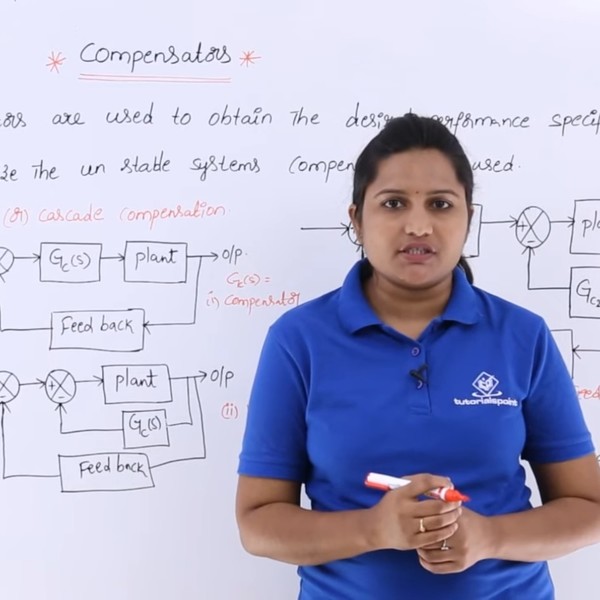 * Compensators *
ors are used to obtain The desi performance specif
ze The un stable systems Compen used.
(or) cascade compensation
Gc(s) plant O/P.
Gc(s) =
(i) Compensator
Feed back
plant O/P
Gc(s)
(ii)
Feed back
pla
Gc2
Feed
tutorialspoint